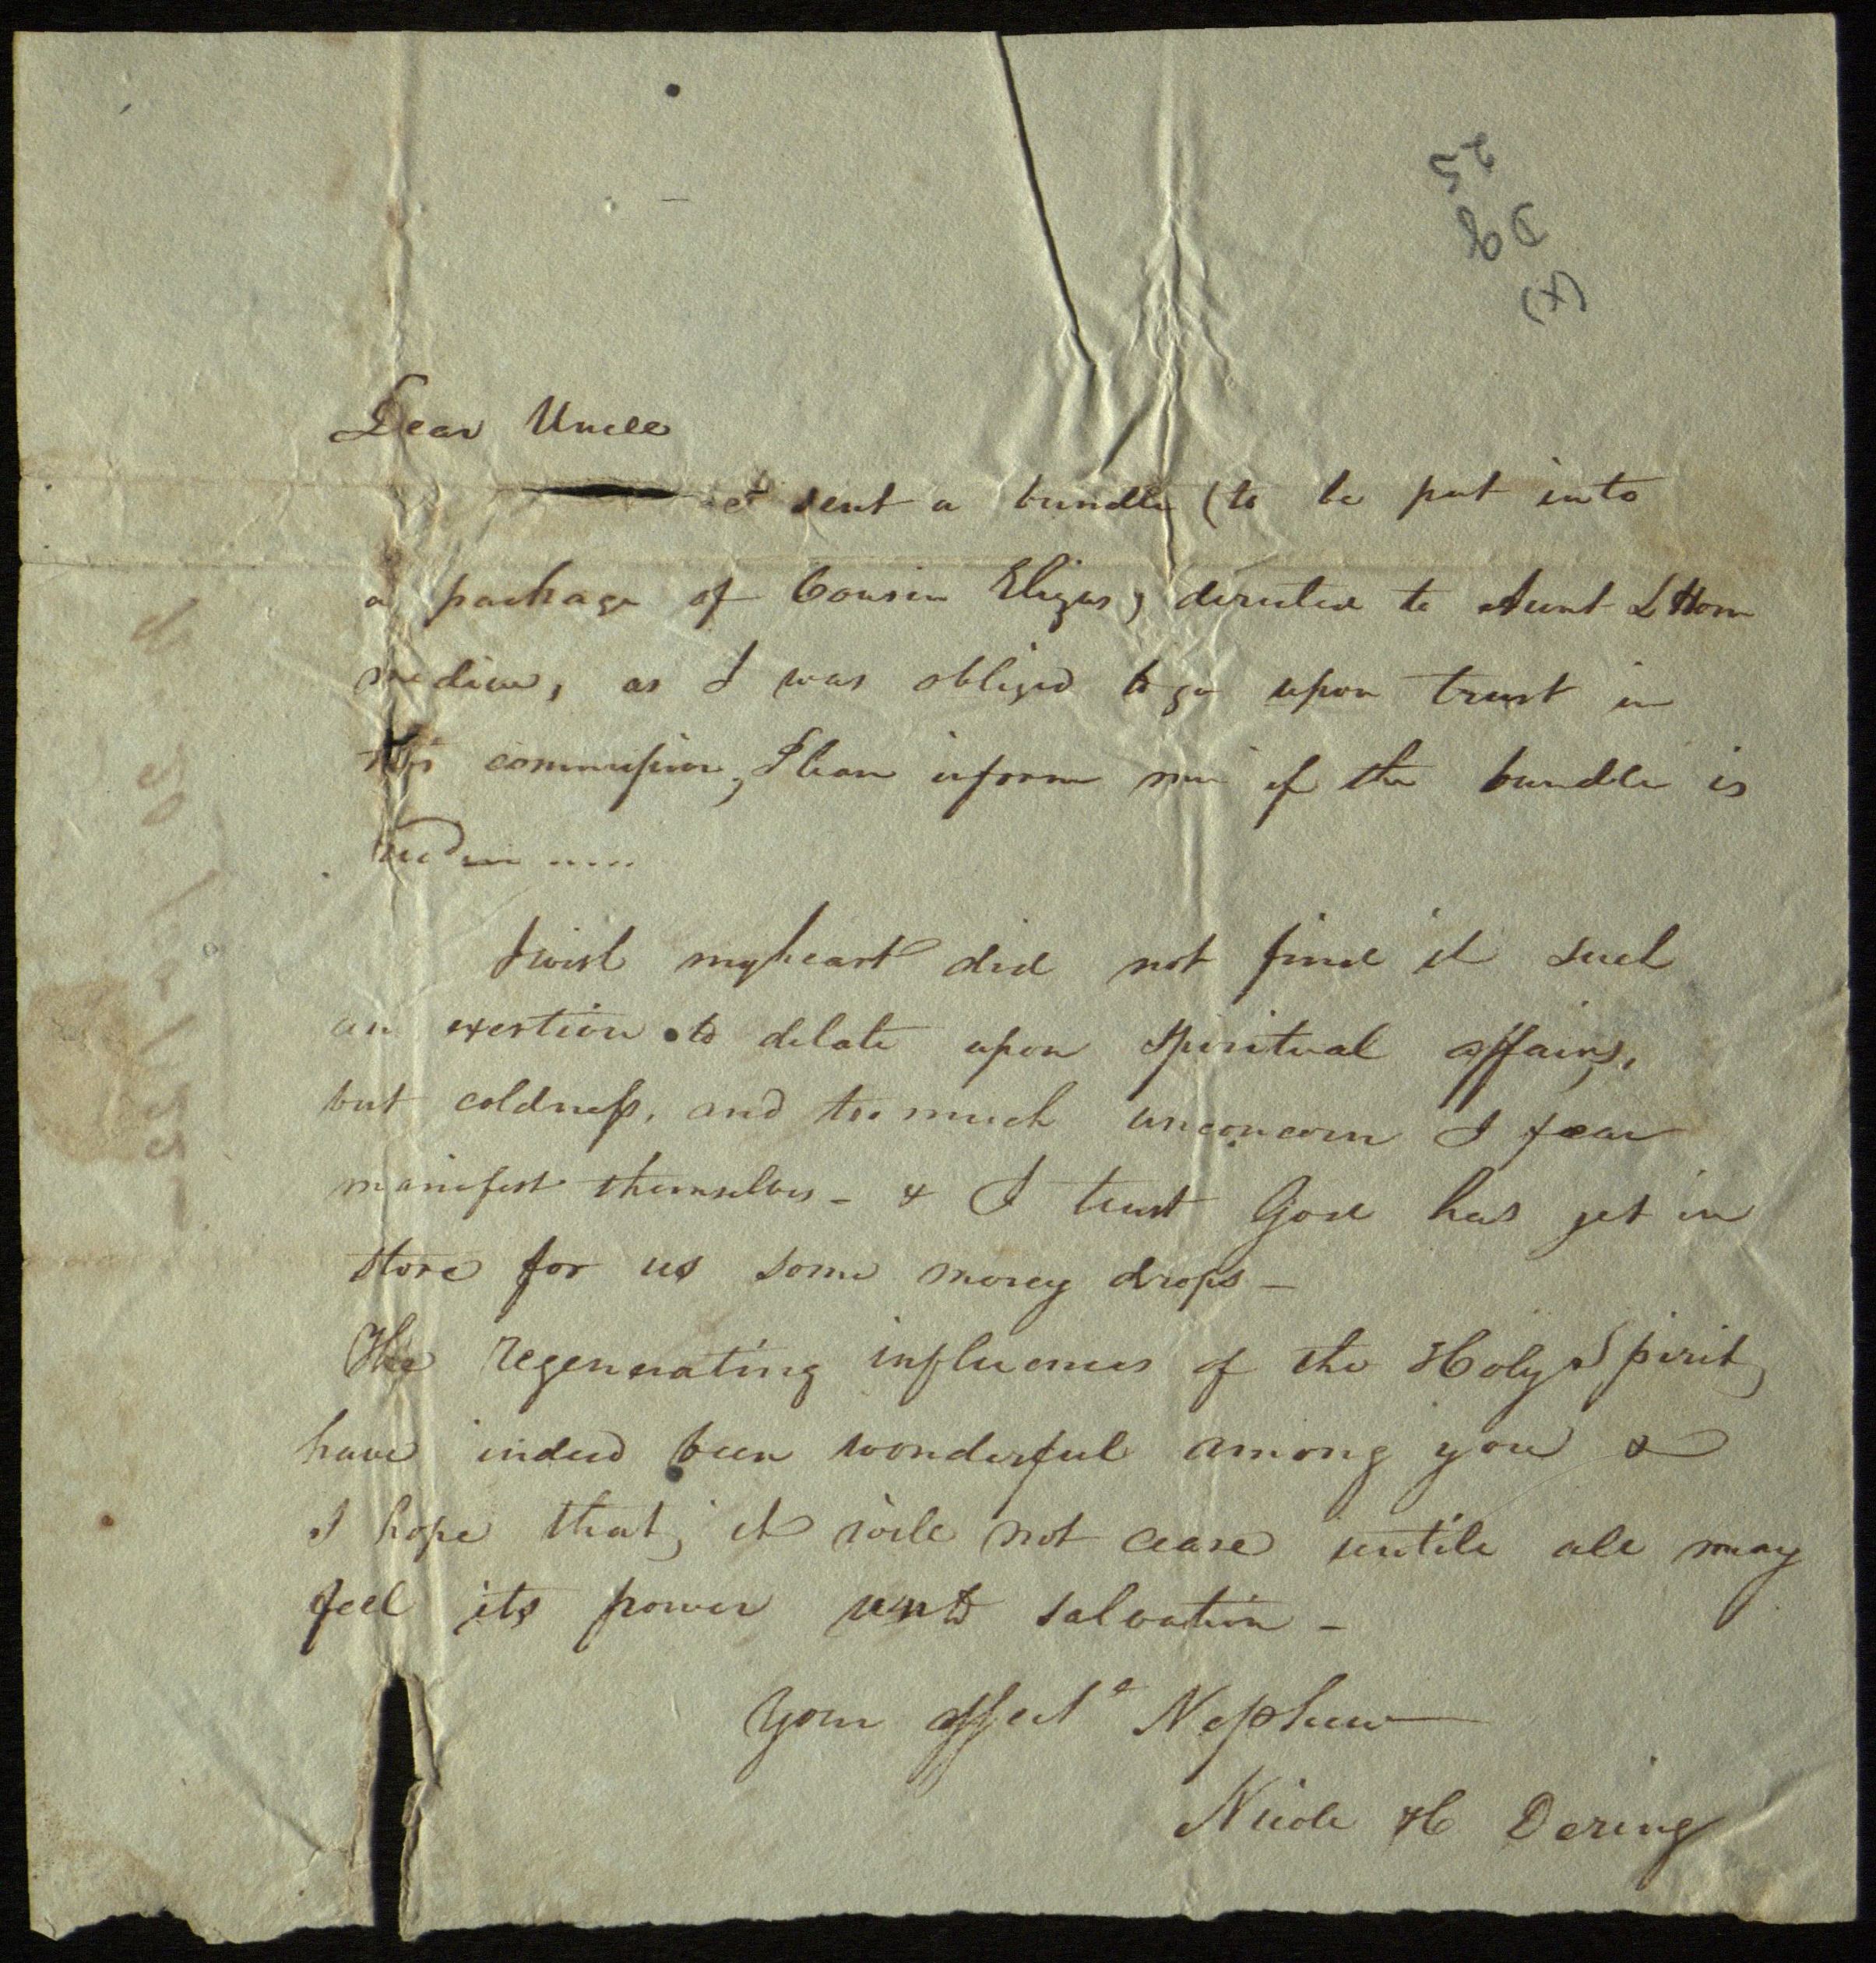 25
D9
(x)
Dear Uncle
sent a bundle (to be put into
a package of Cousin Elizas, directed to Aunt LHom
medieu, as I was obliged to go upon trust in
this commission, Please inform me if the bundle is
recd
I wish my heart did not find it such
an exertion to dilate upon spiritual affairs,
but coldness, and too much unconcern I fear
manifest themselves - & I trust God has yet in
store for us some mercy drops -
The regenerating influences of the Holy Spirit,
have indeed been wonderful among you &
I hope that, it will not cease untill all may
feel its power unto salvation -
Your affect.e Nephew
Nicole H Dering